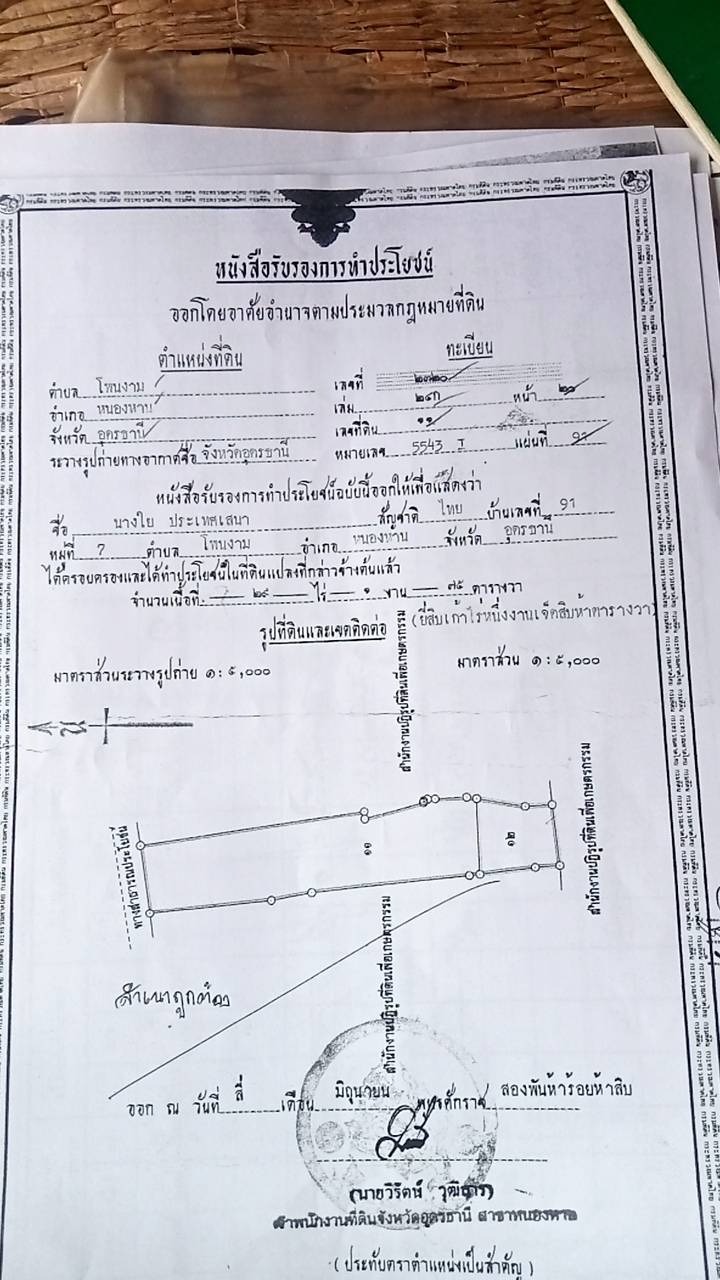 หนังสือรับรองการทำประโยชน์
ออกโดยอาศัยอำนาจตามประมวลกฎหมายที่ดิน
ตำแหน่งที่ดิน
ทะเบียน
ตำบล โพนงาม
อำเภอ หนองหาน
จังหวัด อุดรธานี
ระวางรูปถ่ายทางอากาศชื่อ จังหวัดอุดรธานี
เลขที่ ๒๓๒๐
เล่ม ๒๔ก หน้า ๒๐
เลขที่ดิน ๑๑
หมายเลข 5543 I แผ่นที่ 91
หนังสือรับรองการทำประโยชน์ฉบับนี้ออกให้เพื่อแสดงว่า
ชื่อ นางใย ประเทศเสนา สัญชาติ ไทย บ้านเลขที่ 91
หมู่ที่ 7 ตำบล โพนงาม อำเภอ หนองหาน จังหวัด อุดรธานี
ได้ครอบครองและได้ทำประโยชน์ในที่ดินแปลงที่กล่าวข้างต้นแล้ว
จำนวนเนื้อที่ ๒๙ ไร่ ๑ งาน ๗๕ ตารางวา
(ยี่สิบเก้าไร่หนึ่งงานเจ็ดสิบห้าตารางวา)
รูปที่ดินและเขตติดต่อ
มาตราส่วนระวางรูปถ่าย ๑ : ๕,๐๐๐
มาตราส่วน ๑ : ๕,๐๐๐
น
สำนักงานปฏิรูปที่ดินเพื่อเกษตรกรรม
ทางสาธารณประโยชน์
๑๑
๑๒
สำนักงานปฏิรูปที่ดินเพื่อเกษตรกรรม
สำนักงานปฏิรูปที่ดินเพื่อเกษตรกรรม
สำเนาถูกต้อง
ออก ณ วันที่ สี่ เดือน มิถุนายน พุทธศักราช สองพันห้าร้อยห้าสิบ
(นายวิรัตน์ วุฒิธาร)
เจ้าพนักงานที่ดินจังหวัดอุดรธานี สาขาหนองหาน
(ประทับตราตำแหน่งเป็นสำคัญ)